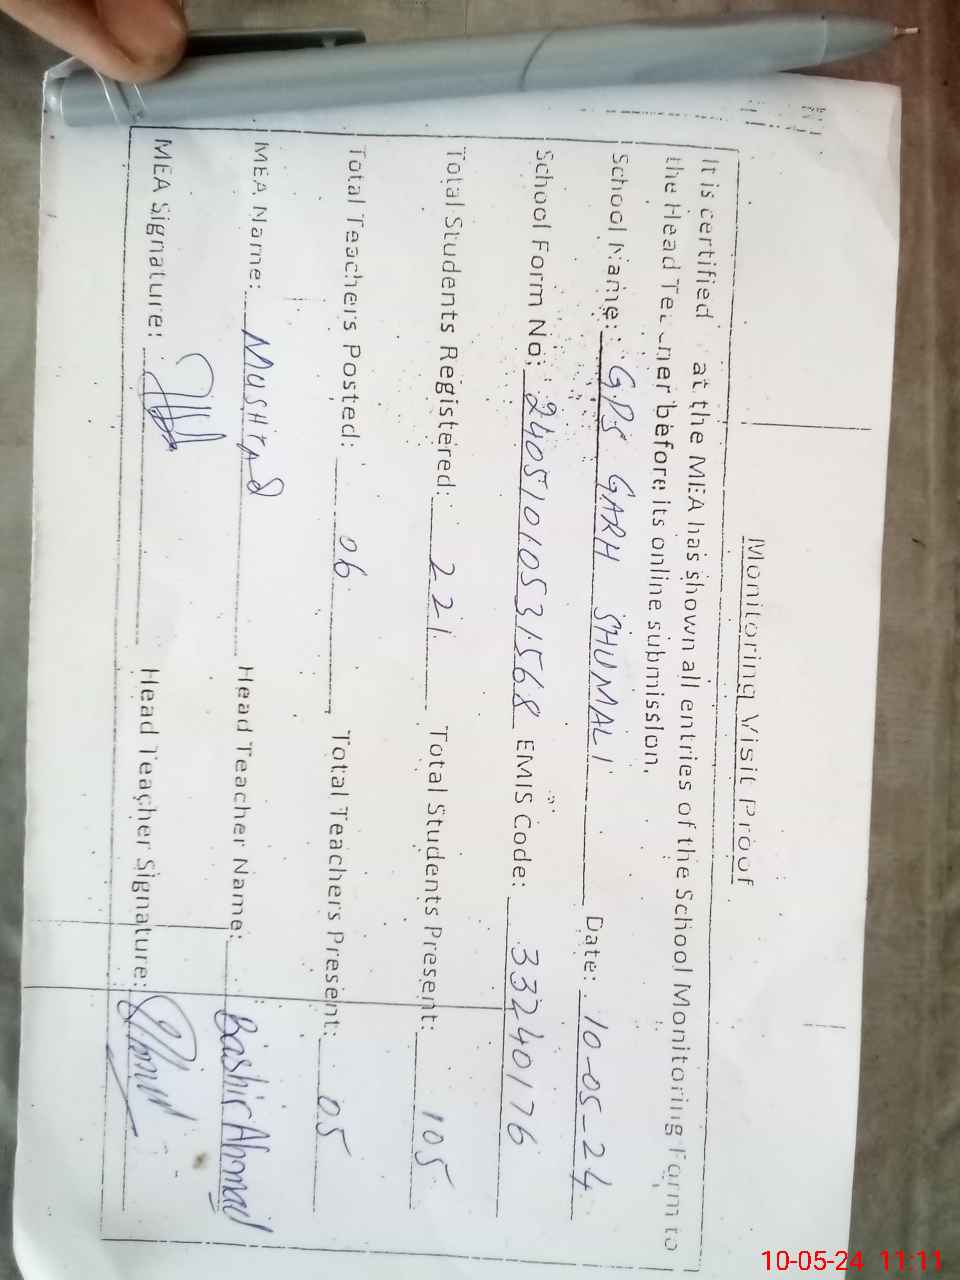 Monitoring Visit Proof
It is certified at the MEA has shown all entries of the School Monitoring Form to
the Head before its online submission.
School Name: GPS GARH SHUMALI Date: 10-05-24
School Form No: 24051010531568 EMIS Code: 33240176
Total Students Registered: 221 Total Students Present: 105
Total Teachers Posted: 06 Total Teachers Present: 05
MEA Name: MUSHTAQ Head Teacher Name: Bashir Ahmad
MEA Signature: Head Teacher Signature:
10-05-24 11:11